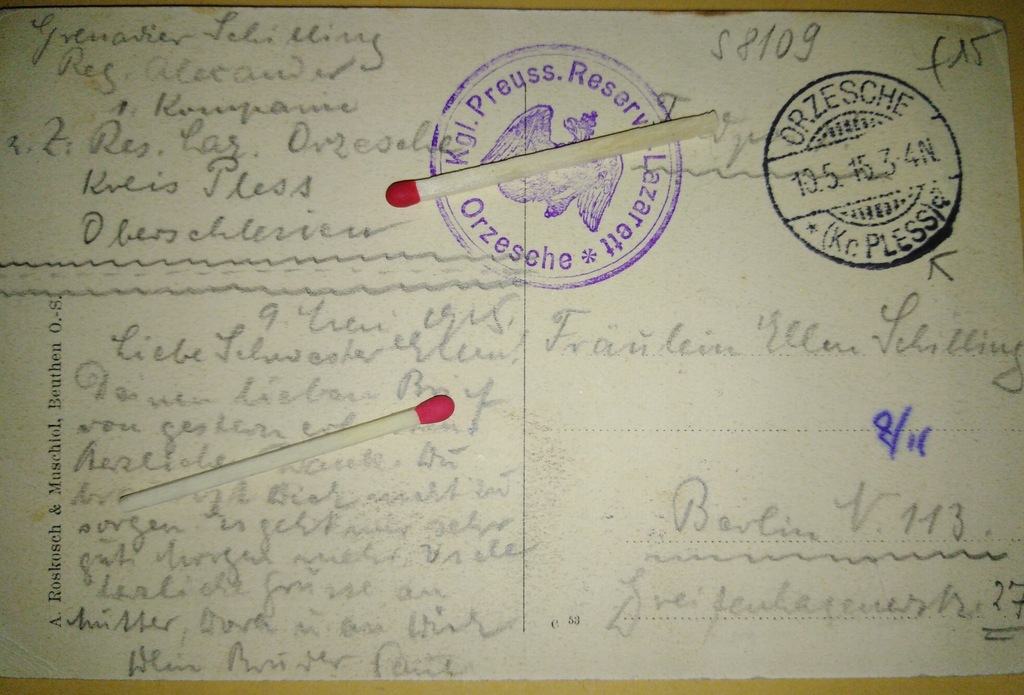 Grenadier Schilling
Reg. Alexander
1. Kompanie
z. Z. Res. Laz. Orzesche
Kreis Pless
Oberschlesien
Kgl. Preuss. Reserv Lazarett
Orzesche *
S 8109
f 15
ORZESCHE
10.5.15.3-4N
* (Kr. PLESS)
9. Mai 1915.
Liebe Schwester Ellen!
Deinen lieben Brief
von gestern
Herzlichen Dank. Du
Dich nicht zu
sorgen Es geht mir sehr
gut Morgen mehr. Viele
herzliche Grüsse an
Mutter, Dora u. an Dich
Dein Bruder Paul
Fräulein Ellen Schilling
8/11
Berlin N. 113.
Greifenhagenerstr. 27
A. Roskosch & Muschiol, Beuthen O.-S.
C 53